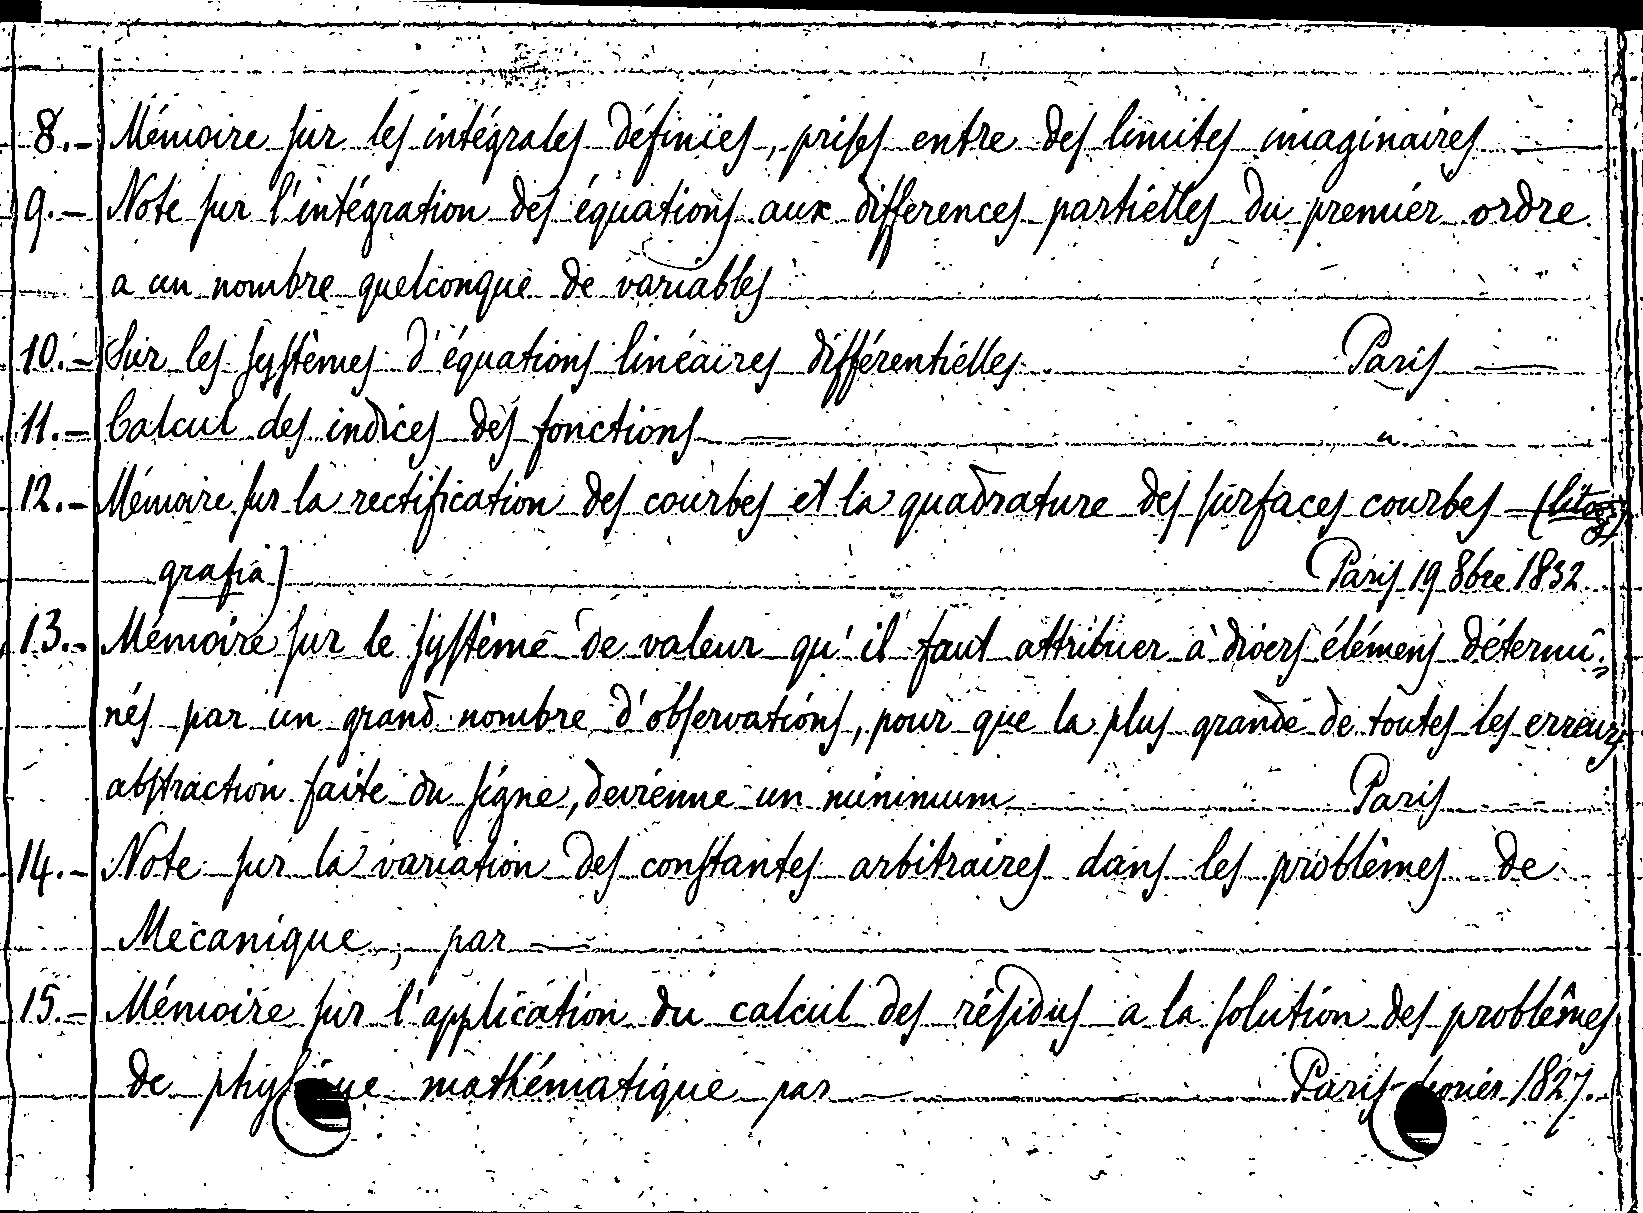 8.- Mémoire sur les intégrales définies, prises entre des limites imaginaires —
9.- Note sur l'intégration des équations aux différences partielles du premier ordre
a un nombre quelconque de variables
10.- Sur les systèmes d'équations linéaires différentielles Paris —
11.- Calcul des indices des fonctions — "
12.- Mémoire sur la rectification des courbes et la quadrature des surfaces courbes - (lito=
grafia) Paris 19 8bre 1832
13.- Mémoire sur le système de valeur qu'il faut attribuer à divers élémens détermi=
nés par un grand nombre d'observations, pour que la plus grande de toutes les erreurs
abstraction faite du signe, devienne un minimum Paris
14.- Note sur la variation des constantes arbitraires dans les problèmes de
Mecanique, par —
15.- Mémoire sur l'application du calcul des résidus a la solution des problêmes
de physique mathématique par — Paris 1827.